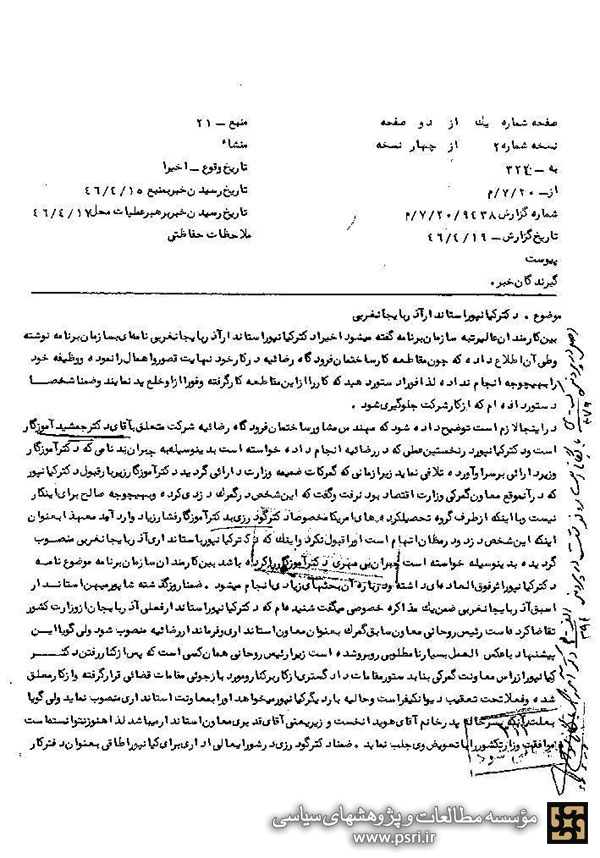 صفحه شماره یك از دو صفحه
نسخه شماره ۲ از چهار نسخه
به ـ ۳۲۲
از ـ ۷/۲۰/م
شماره گزارش ۷/۲۰/۹۴۳۸/م
تاریخ گزارش ـ ۴۶/۴/۱۹
پیوست
گیرندگان خبر .
منبع ـ ۲۱
منشاء
تاریخ وقوع ـ اخیرا
تاریخ رسیدن خبر بمنبع ۴۶/۴/۱۵
تاریخ رسیدن خبر برهبر عملیات محل ۴۶/۴/۱۷
ملاحظات حفاظتی
موضوع . دکتر کیانپور استاندار آذربایجانغربی
بین کارمندان عالیرتبه سازمان برنامه گفته میشود اخیرا دکتر کیانپور استاندار آذربایجانغربی نامه‌ای بسازمان برنامه نوشته
وطی آن اطلاع داده که چون مقاطعه کار ساختمان فرودگاه رضائیه درکار خود نهایت قصور و اهمال را نموده و وظیفه خود
را بهیچوجه انجام نداده لذا فورا دستور دهید که کار را از این مقاطعه کار گرفته وفورا از او خلع ید نمایند وضمنا شخصا
دستور داده ام که از کار شرکت جلوگیری شود .
در اینجا لازم است توضیح داده شود که مهندس مشاور ساختمان فرودگاه رضائیه شرکت متعلق بآقای دکتر جمشید آموزگار
است ودکتر کیانپور در نخستین عملی که در رضائیه انجام داده خواسته است بدینوسیله به جبران بدنامی که دکتر آموزگار
وزیر دارائی برسر او آورده تلافی نماید زیرا زمانی که گمرکات ضمیمه وزارت دارائی گردید دکتر آموزگار زیر بار قبول دکتر کیانپور
که در آنموقع معاون گمرکی وزارت اقتصاد بود نرفت وگفت که این شخص در گمرك دزدی کرده وبهیچوجه صالح برای اینکار
نیست و با اینکه از طرف گروه تحصیلکرده های امریکا مخصوصا دکتر گودرزی بدکتر آموزگار فشار زیاد وارد آمد معهذا بعنوان
اینکه این شخص دزد ودر مظان اتهام است او را قبول نکرد و اینك که دکتر کیانپور باستانداری آذربایجانغربی منصوب
گردیده بدینوسیله خواسته است جبران بی مهری دکتر آموزگار را کرده باشد بین کارمندان سازمان برنامه موضوع نامه
دکتر کیانپور اثر فوق العاده‌ای داشته ودرباره آن بحثهای زیادی انجام میشود . ضمنا روز گذشته شاپور میهن استاندار
اسبق آذربایجانغربی ضمن یك مذاکره خصوصی میگفت شنیده ام که دکتر کیانپور استاندار فعلی آذربایجان از وزارت کشور
تقاضا کرده است رئیس روحانی معاون سابق گمرك بعنوان معاون استانداری وفرماندار رضائیه منصوب شود ولی گویا این
پیشنهاد با عکس العمل بسیار نامطلوبی روبرو شده است زیرا رئیس روحانی همان کسی است که پس از کنار رفتن دکتر
کیانپور از راس معاونت گمرکی بنابدستور مقامات دادگستری از کار برکنار ومورد بازجوئی مقامات قضائی قرار گرفته واز کار معلق
شده وفعلا تحت تعقیب دیوانکیفر است وحالیه بار دیگر کیانپور میخواهد او را بمعاونت استانداری منصوب نماید ولی گویا
بعلت آنکه پسر خاله پدر خانم آقای هویدا نخست وزیر یعنی آقای قدیری معاون استانداری میباشد لذا هنوز نتوانسته است
موافقت وزارتکشور را با تعویض وی جلب نماید . ضمنا دکتر گودرزی در شورایعالی اداری برای کیانپور اطاقی بعنوان دفتر کار
مؤسسه مطالعات و پژوهشهای سیاسی
www.psri.ir